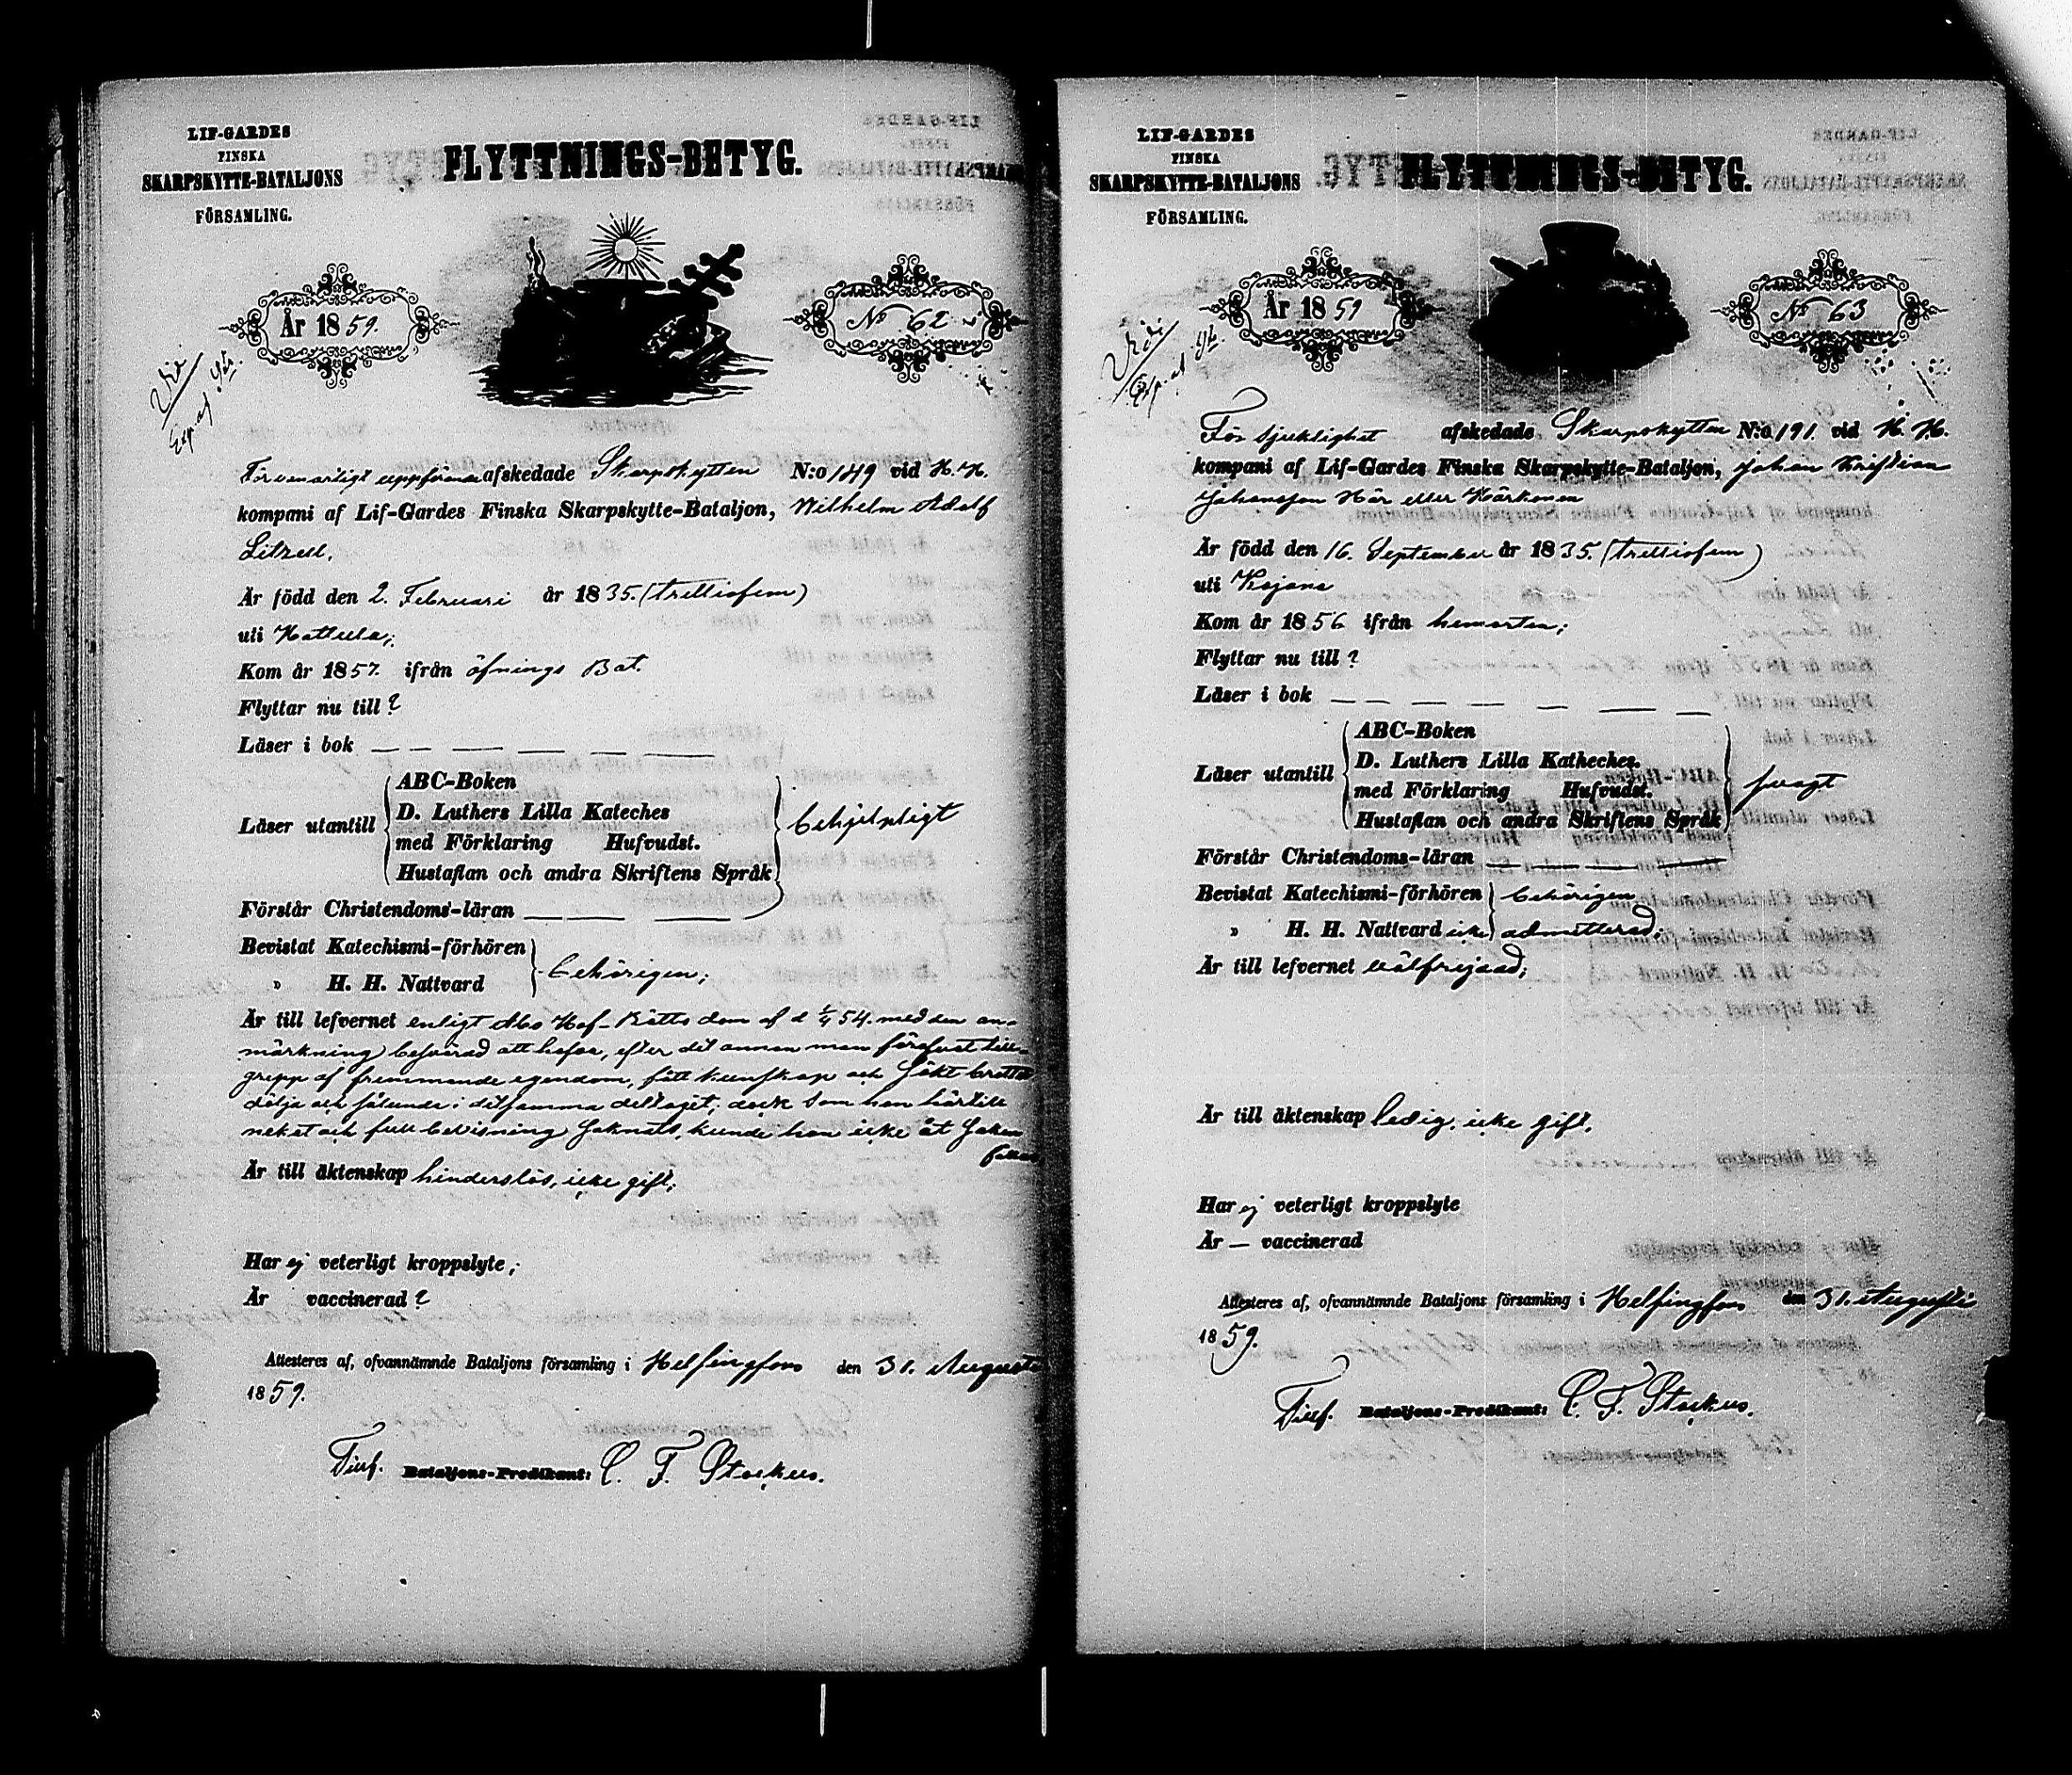 LIF-GARDES
FINSKA
SKARPSKYTTE-BATALJONS
FÖRSAMLING.
FLYTTNINGS-BETYG.
År 1859.
No 62
afskedade Skarpskytten N:o 149 vid H. K.
kompani af Lif-Gardes Finska Skarpskytte-Bataljon, Wilhelm Adolf
Litzell.
Är född den 2. Februari år 1835. (trettiofem)
uti Hattula;
Kom år 1857. ifrån öfnings Bat.
Flyttar nu till?
Läser i bok — — — — — —
Läser utantill
ABC-Boken
D. Luthers Lilla Kateches
med Förklaring Hufvudst.
Hustaflan och andra Skriftens Språk
behjelpligt
Förstår Christendoms-läran — — —
Bevistat Katechismi-förhören
" H. H. Nattvard
behörigen;
Är till lefvernet enligt Åbo Hof-Rätts dom af d med den an-
märkning besvärad att hafva, efter det annan man föröfvat till-
grepp af fremmande egendom, fått kunskap och sökt brottet
dölja och sålunda i detsamma deltagit; dock som han härtill
nekat och full bevisning saknats, kunde han icke åt saken
fällas
Är till äktenskap hinderslös, icke gift;
Har ej veterligt kroppslyte;
Är vaccinerad?
Attesteres af, ofvannämnde Bataljons församling i Helsingfors den 31. Augusti
1859.
Bataljons-Predikant: C. F. Stockus.
LIF-GARDES
FINSKA
SKARPSKYTTE-BATALJONS
FÖRSAMLING.
FLYTTNINGS-BETYG.
År 1859
No 63
För sjuklighet afskedade Skarpskytten N:o 191. vid H. K.
kompani af Lif-Gardes Finska Skarpskytte-Bataljon, Johan Kristian
Johansson Här eller Härkonen
Är född den 16. September år 1835. (trettiofem)
uti Kajana
Kom år 1856 ifrån hemorten;
Flyttar nu till?
Läser i bok — — — — — —
Läser utantill
ABC-Boken
D. Luthers Lilla Katheches.
med Förklaring Hufvudst.
Hustaflan och andra Skriftens Språk
svagt
Förstår Christendoms-läran — — —
Bevistat Katechismi-förhören behörigen
" H. H. Nattvard icke admitterad;
Är till lefvernet välfrejdad;
Är till äktenskap ledig, icke gift.
Har ej veterligt kroppslyte
Är — vaccinerad
Attesteres af, ofvannämnde Bataljons församling i Helsingfors den 31. Augusti
1859.
Bataljons-Predikant: C. F. Stockus.